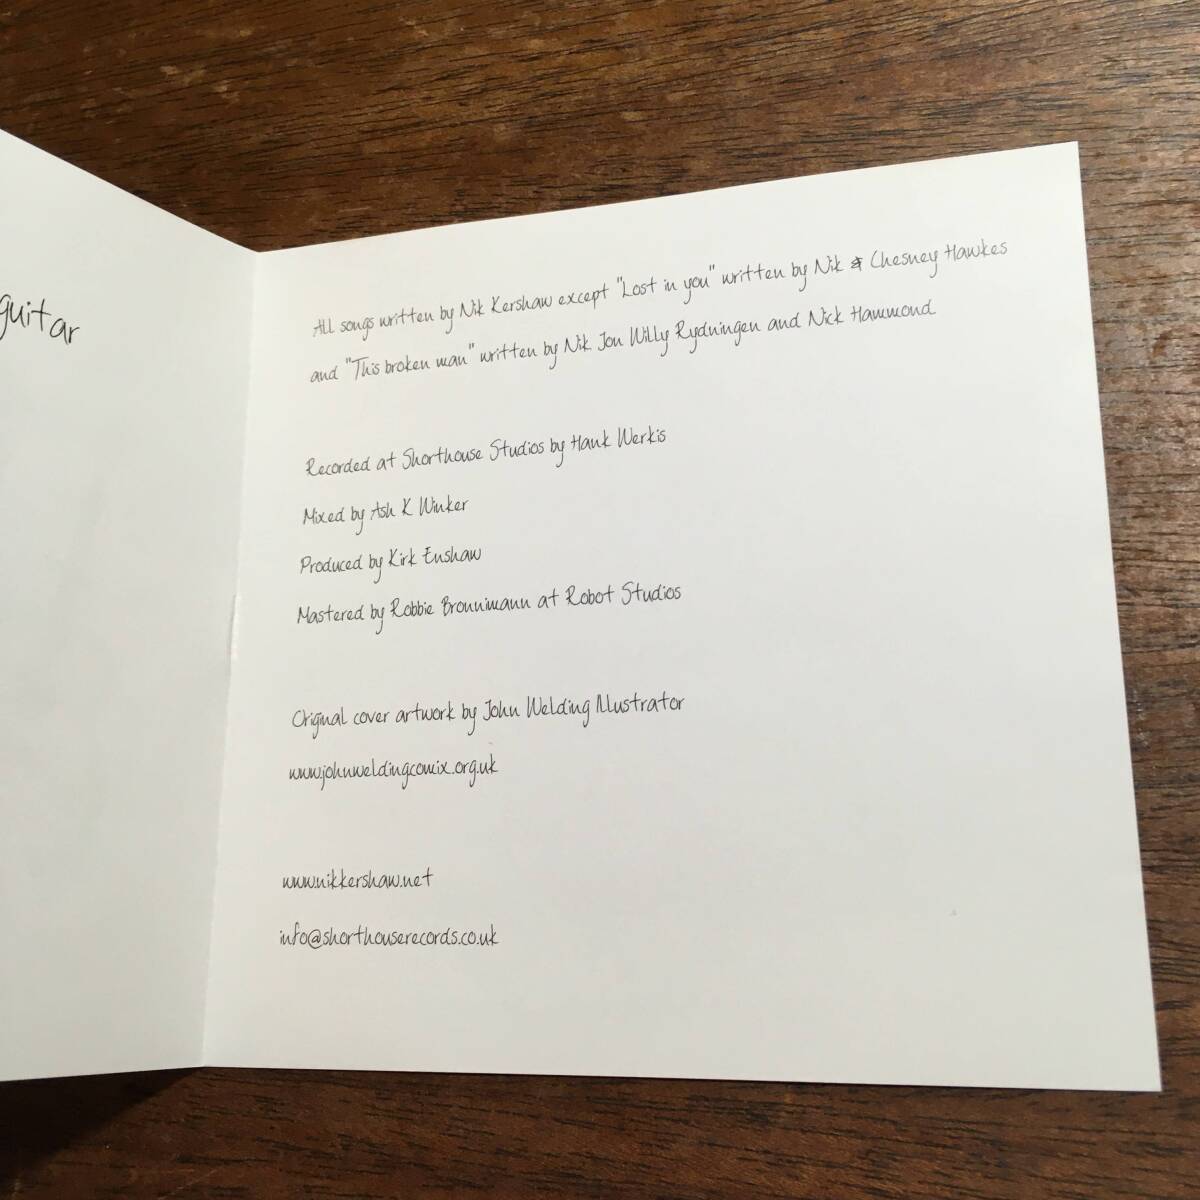 guitar
All songs written by Nik Kershaw except "Lost in you" written by Nik & Chesney Hawkes
and "This broken man" written by Nik Jon Willy Rydningen and Nick Hammond
Recorded at Shorthouse Studios by Hank Werkis
Mixed by Ash K Winker
Produced by Kirk Enshaw
Mastered by Robbie Bronnimann at Robot Studios
Original cover artwork by John Welding Illustrator
www.johnweldingcomix.org.uk
www.nikkershaw.net
info@shorthouserecords.co.uk